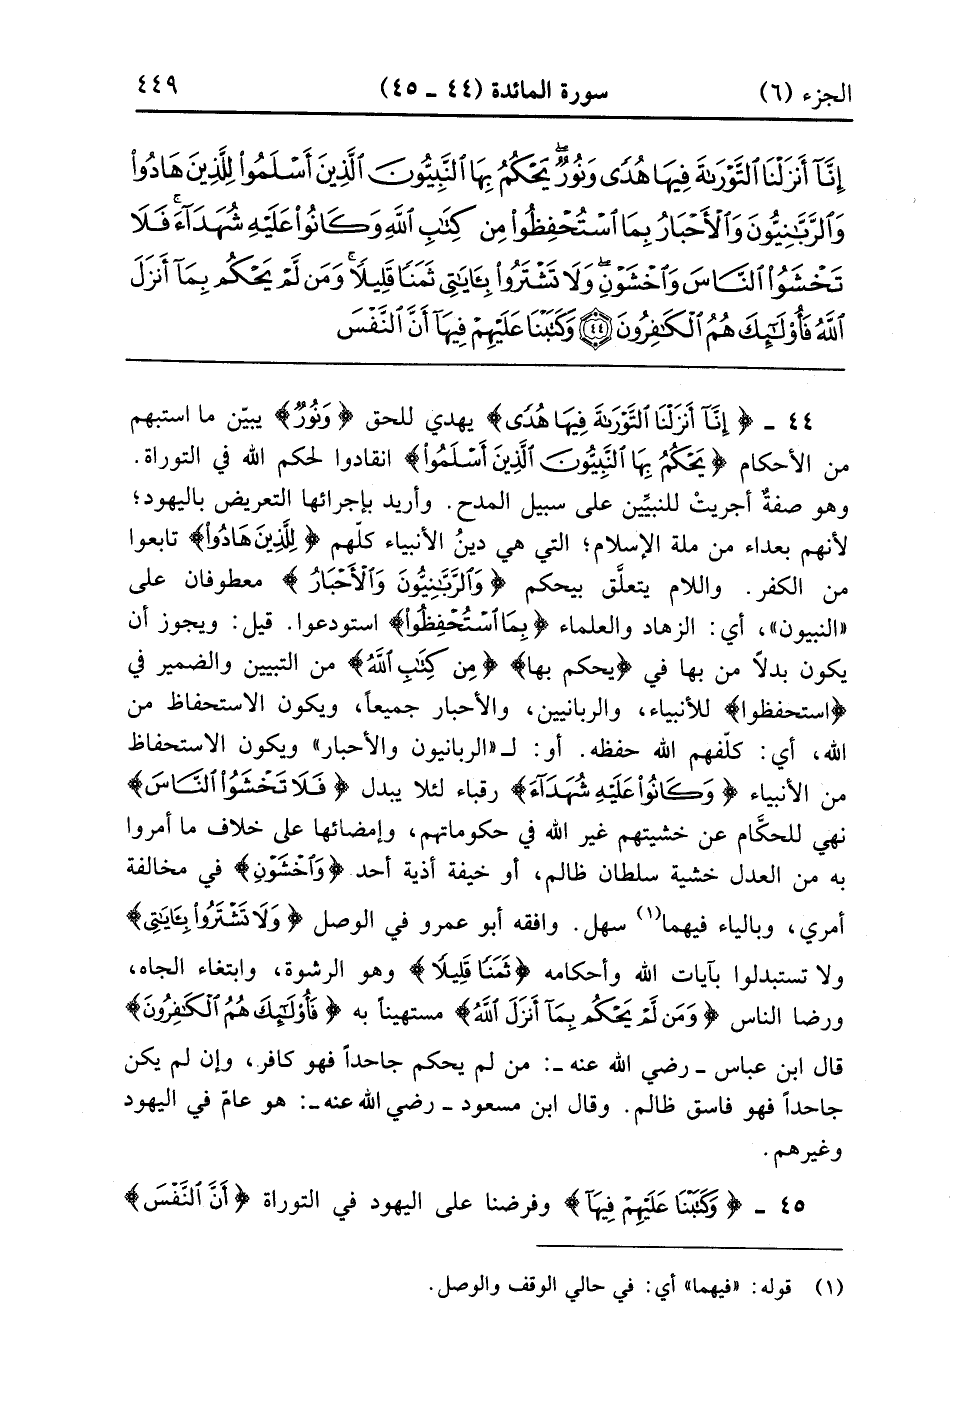 الجزء (٦) سورة المائدة (٤٤ ـ ٤٥) ٤٤٩
إِنَّآ أَنزَلْنَا ٱلتَّوْرَىٰةَ فِيهَا هُدًى وَنُورٌ ۚ يَحْكُمُ بِهَا ٱلنَّبِيُّونَ ٱلَّذِينَ أَسْلَمُوا۟ لِلَّذِينَ هَادُوا۟
وَٱلرَّبَّـٰنِيُّونَ وَٱلْأَحْبَارُ بِمَا ٱسْتُحْفِظُوا۟ مِن كِتَـٰبِ ٱللَّهِ وَكَانُوا۟ عَلَيْهِ شُهَدَآءَ ۚ فَلَا
تَخْشَوُا۟ ٱلنَّاسَ وَٱخْشَوْنِ ۖ وَلَا تَشْتَرُوا۟ بِـَٔايَـٰتِى ثَمَنًا قَلِيلًا ۚ وَمَن لَّمْ يَحْكُم بِمَآ أَنزَلَ
ٱللَّهُ فَأُو۟لَـٰٓئِكَ هُمُ ٱلْكَـٰفِرُونَ ﴿٤٤﴾ وَكَتَبْنَا عَلَيْهِمْ فِيهَآ أَنَّ ٱلنَّفْسَ
٤٤ ـ ﴿إِنَّآ أَنزَلْنَا ٱلتَّوْرَىٰةَ فِيهَا هُدًى﴾ يهدي للحق ﴿وَنُورٌ﴾ يبيّن ما استبهم
من الأحكام ﴿يَحْكُمُ بِهَا ٱلنَّبِيُّونَ ٱلَّذِينَ أَسْلَمُوا۟﴾ انقادوا لحكم الله في التوراة.
وهو صفةٌ أجريتْ للنبيِّين على سبيل المدح. وأريد بإجرائها التعريض باليهود؛
لأنهم بعداء من ملة الإسلام؛ التي هي دينُ الأنبياء كلّهم ﴿لِلَّذِينَ هَادُوا۟﴾ تابعوا
من الكفر. واللام يتعلَّق بيحكم ﴿وَٱلرَّبَّـٰنِيُّونَ وَٱلْأَحْبَارُ﴾ معطوفان على
«النبيون»، أي: الزهاد والعلماء ﴿بِمَا ٱسْتُحْفِظُوا۟﴾ استودعوا. قيل: ويجوز أن
يكون بدلاً من بها في ﴿يحكم بها﴾ ﴿مِن كِتَـٰبِ ٱللَّهِ﴾ من التبيين والضمير في
﴿استحفظوا﴾ للأنبياء، والربانيين، والأحبار جميعاً، ويكون الاستحفاظ من
الله، أي: كلّفهم الله حفظه. أو: لـ«الربانيون والأحبار» ويكون الاستحفاظ
من الأنبياء ﴿وَكَانُوا۟ عَلَيْهِ شُهَدَآءَ﴾ رقباء لئلا يبدل ﴿فَلَا تَخْشَوُا۟ ٱلنَّاسَ﴾
نهي للحكَّام عن خشيتهم غير الله في حكوماتهم، وإمضائها على خلاف ما أمروا
به من العدل خشية سلطان ظالم، أو خيفة أذية أحد ﴿وَٱخْشَوْنِ﴾ في مخالفة
أمري، وبالياء فيهما(١) سهل. وافقه أبو عمرو في الوصل ﴿وَلَا تَشْتَرُوا۟ بِـَٔايَـٰتِى﴾
ولا تستبدلوا بآيات الله وأحكامه ﴿ثَمَنًا قَلِيلًا﴾ وهو الرشوة، وابتغاء الجاه،
ورضا الناس ﴿وَمَن لَّمْ يَحْكُم بِمَآ أَنزَلَ ٱللَّهُ﴾ مستهيناً به ﴿فَأُو۟لَـٰٓئِكَ هُمُ ٱلْكَـٰفِرُونَ﴾
قال ابن عباس ـ رضي الله عنه ـ: من لم يحكم جاحداً فهو كافر، وإن لم يكن
جاحداً فهو فاسق ظالم. وقال ابن مسعود ـ رضي الله عنه ـ: هو عامّ في اليهود
وغيرهم.
٤٥ ـ ﴿وَكَتَبْنَا عَلَيْهِمْ فِيهَآ﴾ وفرضنا على اليهود في التوراة ﴿أَنَّ ٱلنَّفْسَ﴾
(١) قوله: «فيهما» أي: في حالي الوقف والوصل.